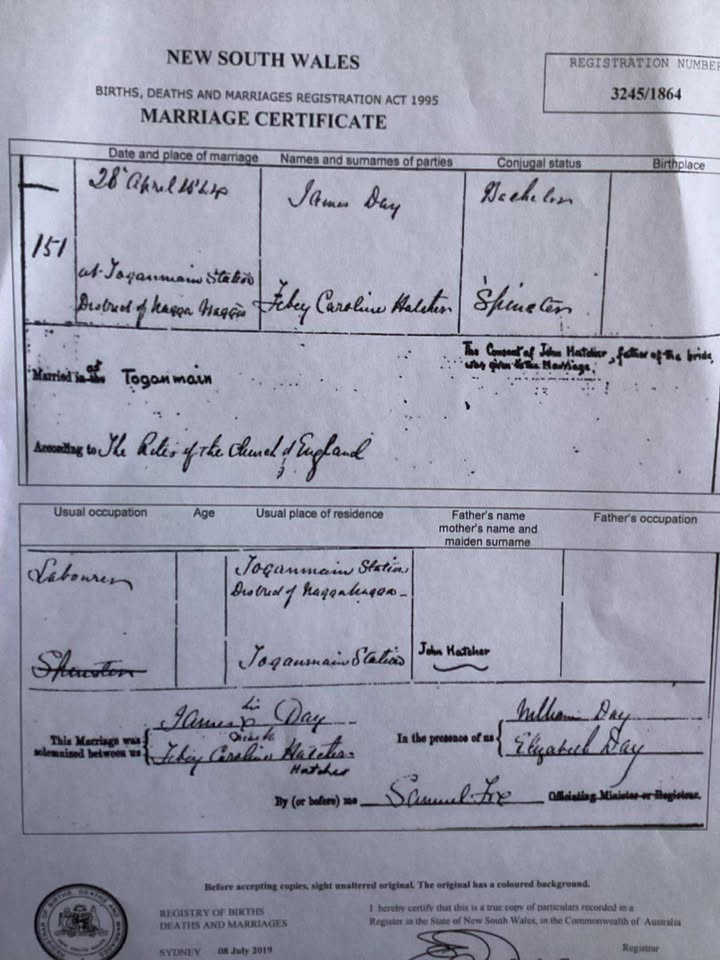 NEW SOUTH WALES
BIRTHS, DEATHS AND MARRIAGES REGISTRATION ACT 1995
MARRIAGE CERTIFICATE
REGISTRATION NUMBER
3245/1864
Date and place of marriage
Names and surnames of parties
Conjugal status
Birthplace
151
28 April 1864
at Toganmain Station
District of Wagga Wagga
James Day
Febey Caroline Hatcher
Bachelor
Spinster
The Consent of John Hatcher, father of the bride,
was given to the Marriage.
Married in the at Toganmain
According to The Rites of the Church of England
Usual occupation
Age
Usual place of residence
Father's name
mother's name and
maiden surname
Father's occupation
Labourer
Toganmain Station
District of Wagga Wagga
Spinster
Toganmain Station
John Hatcher
This Marriage was
solemnized between us
James his x mark Day
Febey Caroline Hatcher
Hatcher
In the presence of us
William Day
Elizabeth Day
By (or before) me Samuel Fox Officiating Minister or Registrar.
Before accepting copies, sight unaltered original. The original has a coloured background.
REGISTRY OF BIRTHS
DEATHS AND MARRIAGES
SYDNEY 08 July 2019
I hereby certify that this is a true copy of particulars recorded in a
Register in the State of New South Wales, in the Commonwealth of Australia
Registrar